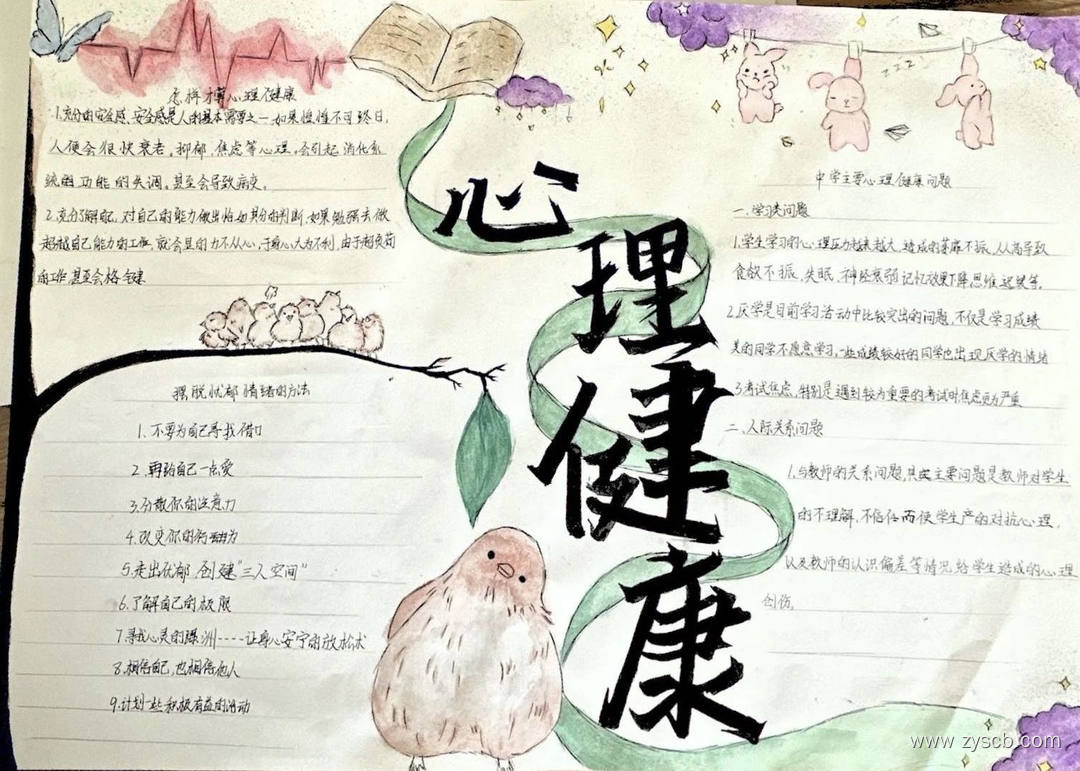 怎样才算心理健康
1.充分的安全感、安全感是人的基本需要之一、如果惶惶不可终日,
人便会很快衰老。抑郁、焦虑等心理。会引起消化系
统的功能的失调。甚至会导致病变。
2.充分了解自己,对自己的能力做出恰如其分的判断.如果勉强去做
超越自己能力的工作,就会显的力不从心,于身心大为不利,由于超负荷
的工作.甚至会
摆脱忧郁情绪的方法
1.不要为自己寻找借口
2.再给自己一点爱
3.分散你的注意力
4.改变你的行动力
5.走出忧郁,创建“三人空间”
6.了解自己的极限
7.寻找心灵的绿洲----让身心安宁的放松术
8.相信自己,也相信他人
9.计划一些积极有益的活动
心理健康
zzz
中学主要心理健康问题
一.学习类问题
1.学生学习的心理压力越来越大,造成的萎靡不振,从而导致
食欲不振,失眠,神经衰弱记忆效果下降思维迟缓等。
2.厌学是目前学习活动中比较突出的问题,不仅是学习成绩
美的同学不愿意学习,一些成绩较好的同学也出现厌学的情绪
3.考试焦虑,特别是遇到较为重要的考试时焦虑更为严重
二、人际关系问题
1.与教师的关系问题,其主要问题是教师对学生
的不理解,不信任而使学生产的对抗心理,
以及教师的认识偏差等情况给学生造成的心理
创伤。
www.zyscb.com